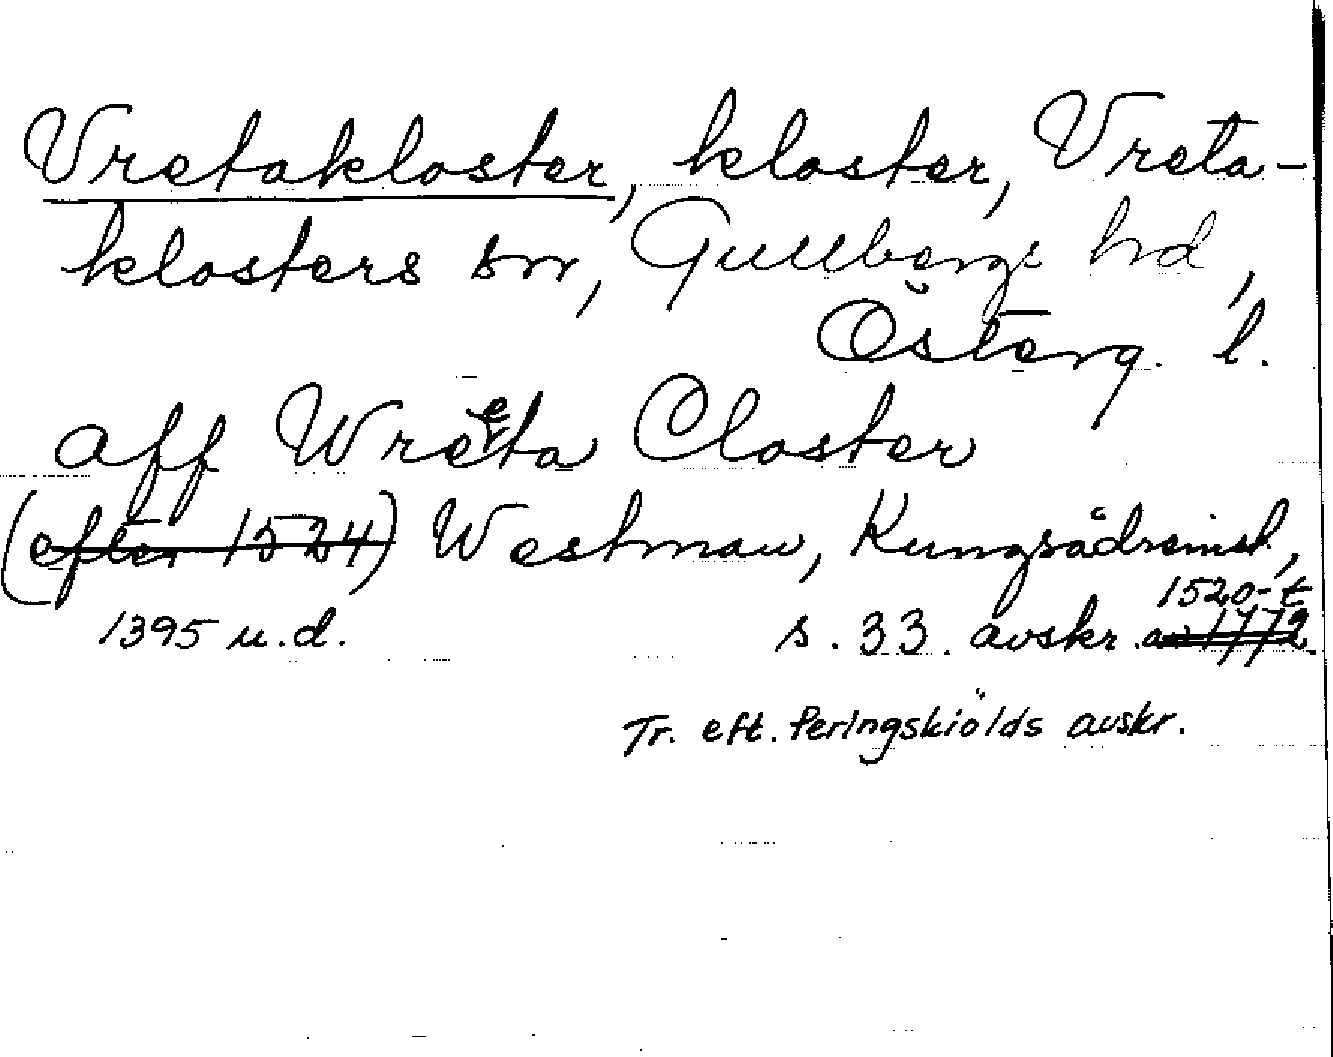 Vretakloster, kloster, Vreta-
klosters sn, Gullbergs hd,
Österg. l.
aff Wreta Closter
(efter 1524) Westman, Kungsådreinst,
1520-t
1395 u.d. s. 33. avskr. av 1772.
Tr. eft. Peringskiölds avskr.